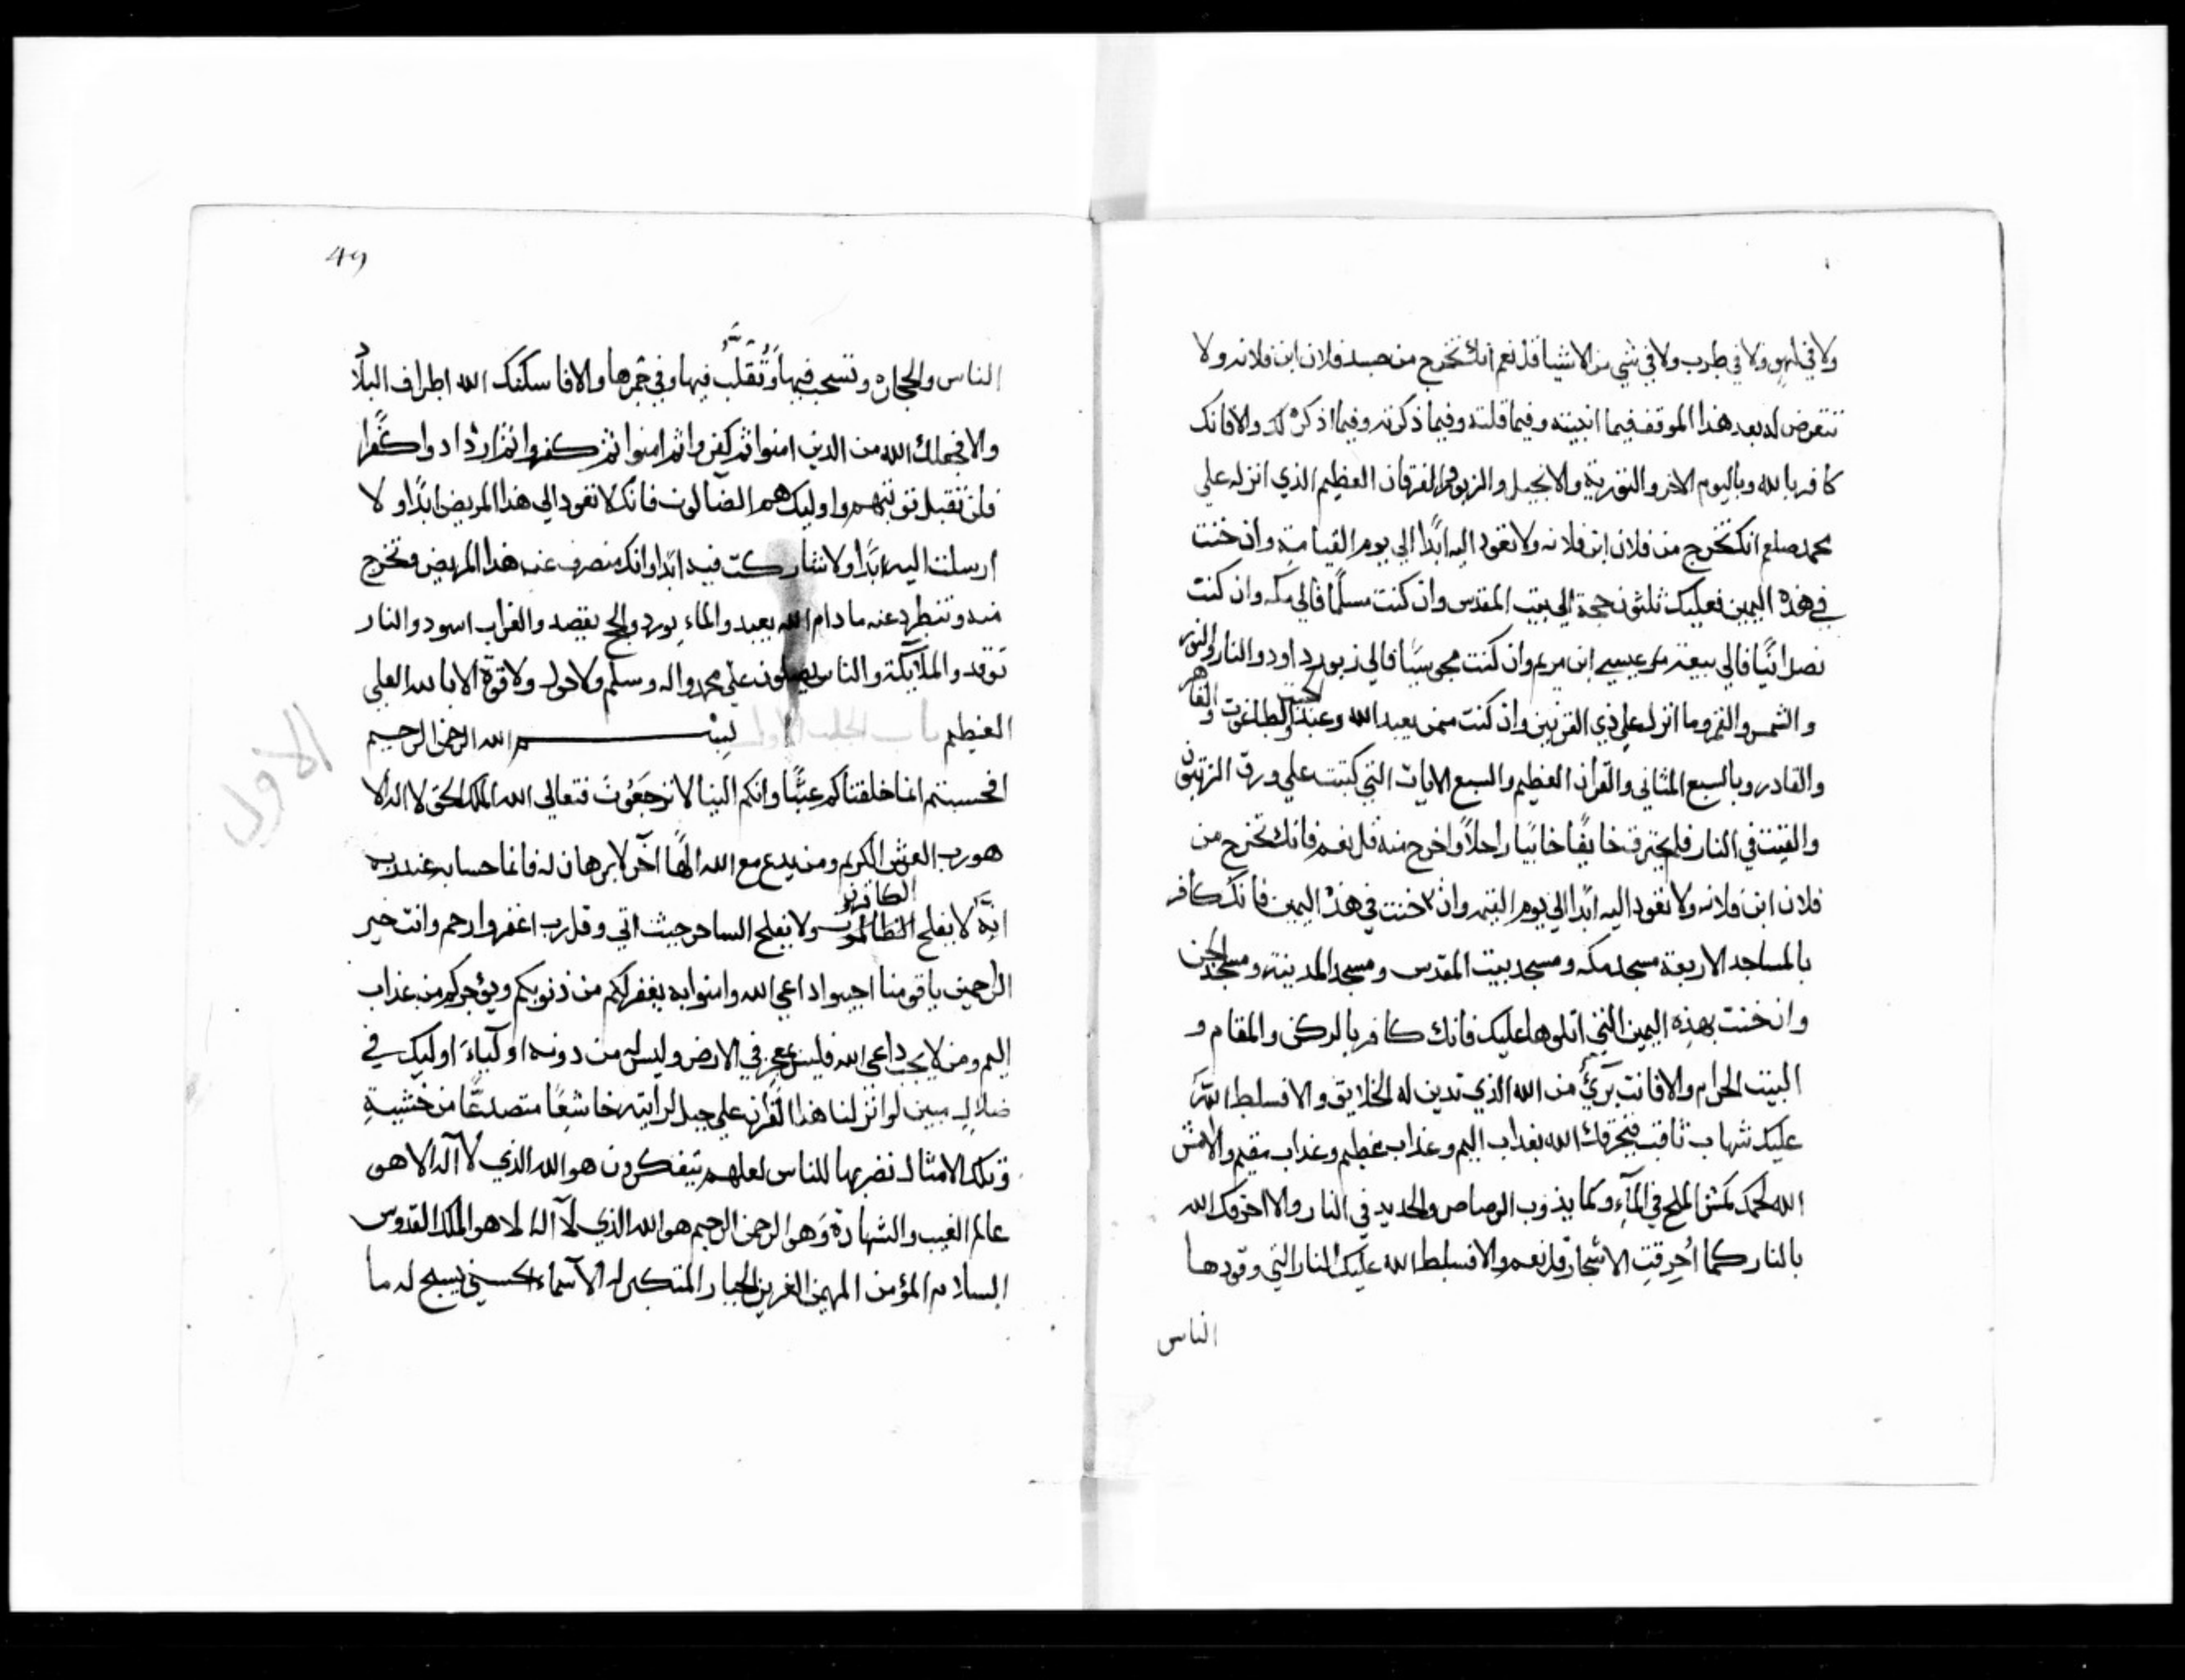 ولا في لهو ولا في طرب ولا في شي من الاشيا قل نعم انك تخرج من جسد فلان ابن فلانه ولا
تتعرض له بعد هذا الموقف فيما انبيته وفيما قلته وفيما ذكرته وفيما اذكر لك والا فانك
كافر بالله وباليوم الاخر والتورية والانجيل والزبور والفرقان العظيم الذي انزله علي
محمد صلعم انك تخرج من فلان ابن فلانه ولا تعود اليه ابدًا الي يوم القيامة وان خنت
في هذه اليمين فعليك ثلثون حجة الي بيت المقدس وان كنت مسلمًا فالي مكه وان كنت
نصرانيًا فالي بيعة عيسي ابن مريم وان كنت مجوسيًا فالي زبور داود والنار والنور
والشمس والقمر وما انزل علي ذي القرنين وان كنت ممن يعبد الله وعبد الطاغوت والقاهر
والقادر وبالسبع المثاني والقران العظيم والسبع الايات التي كتبت علي ورق الزيتون
والقيت في النار فلم تحترق خايفًا خايبًا راحلاً واخرج منه قل نعم فانك تخرج من
فلان ابن فلانه ولا تعود اليه ابدًا الي يوم القيمه وان خنت في هذه اليمين فانك كافر
بالمساجد الاربعة مسجد مكه ومسجد بيت المقدس ومسجد المدينة ومسجد الجن
وان خنت بهذه اليمين التي اتلوها عليك فانك كافر بالركن والمقام و
البيت الحرام والا فانت بريٌ من الله الذي تدين له الخلايق والا فسلط الله
عليك شهاب ثاقب فيحرقك الله بعذاب اليم وعذاب عظيم وعذاب مقيم والا مش
الله لحمك كمش الملح في المآء وكما يذوب الرصاص والحديد في النار والا احرقك الله
بالنار كما اُحرقت الاشجار قل نعم والا فسلط الله عليك النار التي وقودها
الناس
49
الناس والحجاره وتسحب فيها وتُقلّب فيها وفي جمرها والا فا سكنك الله اطراف البلاد
والا فجعلك الله من الذين امنوا ثم كفروا ثم امنوا ثم كفروا ثم ازدادوا كفرًا
فلن تقبل توبتهم واوليك هم الضالون فانك لا تعود الي هذا المريض ابدًا ولا
ارسلت اليه ابدًا ولا شاركت فيه ابدًا وانك منصرف عن هذا المريض وتخرج
منه وتنطرد عنه ما دام الله يعبد والماء يورد والحج يقصد والغراب اسود والنار
توقد والملآيكة والناس يصلون علي محمد واله وسلم ولا حول ولا قوة الا بالله العلي
العظيم بسم الله الرحمن الرحيم
افحسبتم انما خلقناكم عبثًا وانكم الينا لا ترجعون فتعالي الله الملك الحق لا اله الا
هو رب العرش الكريم ومن يدع مع الله الهًا آخر لا برهان له فانما حسابه عند ربه
الكافرين
انه لا يفلح الظالمون ولا يفلح الساحر حيث اتي وقل رب اغفر وارحم وانت خير
الراحمين يا قومنا اجيبوا داعي الله وامنوا به يغفر لكم من ذنوبكم ويؤجركم من عذاب
اليم ومن لا يجب داعي الله فليس بمعجز في الارض وليس له من دونه اوليآء اوليك في
ضلال مبين لو انزلنا هذا القران علي جبل لرايته خاشعًا متصدعًا من خشية
وتلك الامثال نضربها للناس لعلهم يتفكرون هو الله الذي لا آله الا هو
عالم الغيب والشهادة وهو الرحمن الرحيم هو الله الذي لآ آله الا هو الملك القدوس
السلام المؤمن المهيمن العزيز الجبار المتكبر له الآسماء الحسني يسبح له ما
الاول